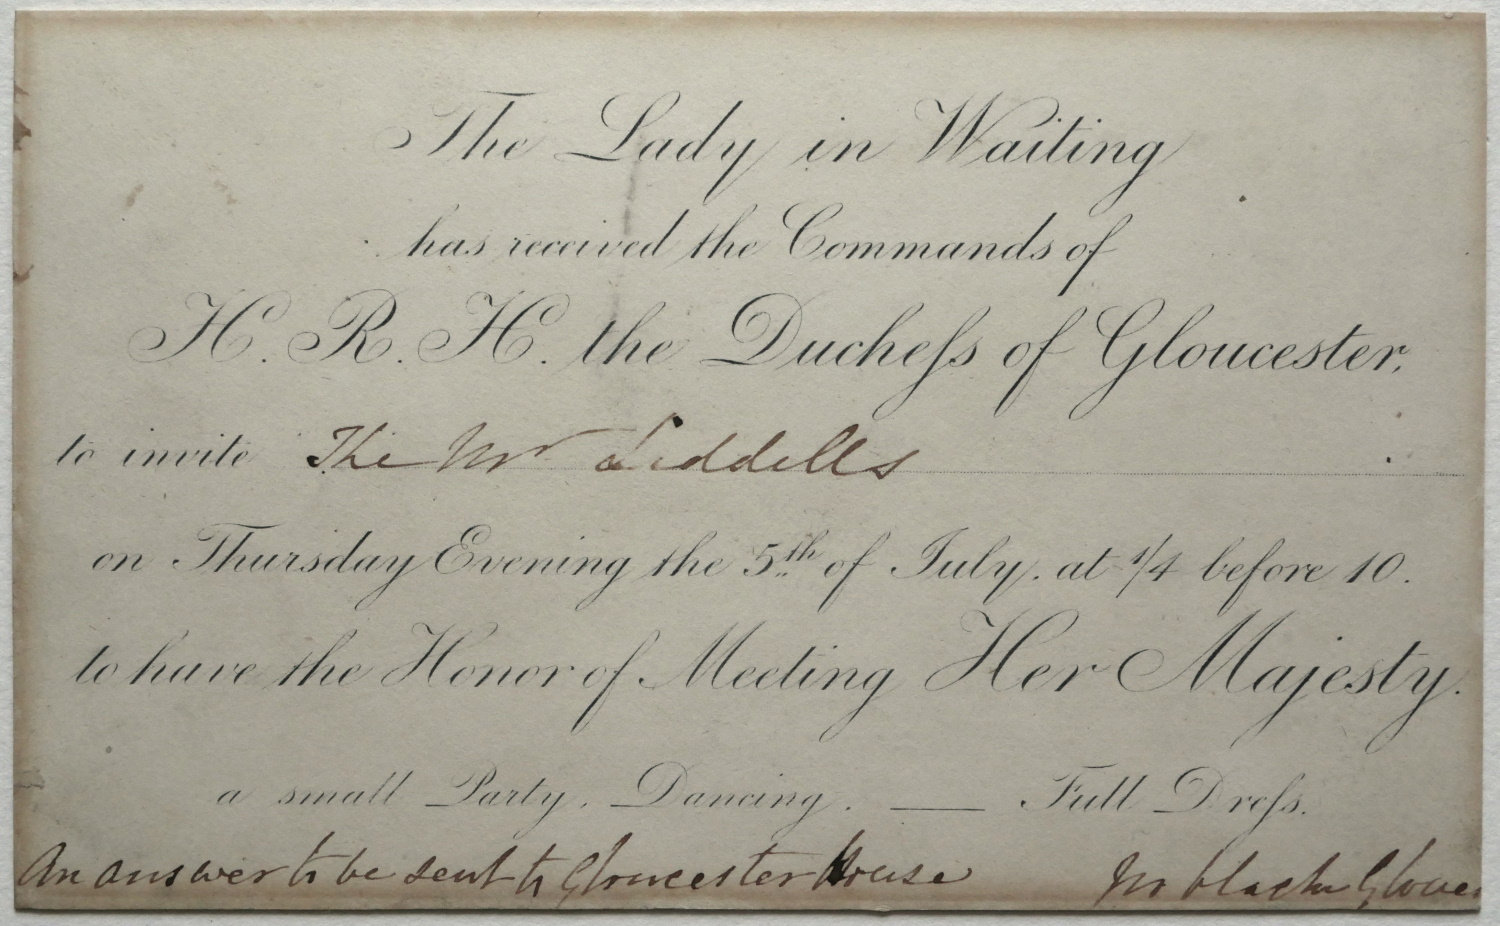 The Lady in Waiting
has received the Commands of
H. R. H. the Ducheſs of Gloucester,
to invite The Mr Liddells
on Thursday Evening the 5th of July. at 1/4 before 10.
to have the Honor of Meeting Her Majesty.
a small Party. Dancing. — Full Dreſs.
An answer to be sent to Gloucester House No black Gloves